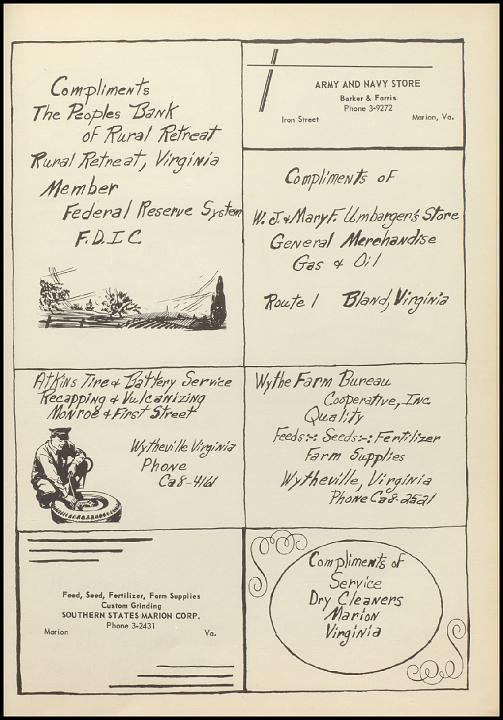 Compliments
The Peoples Bank
of Rural Retreat
Rural Retreat, Virginia
Member
Federal Reserve System
F.D.I.C
ARMY AND NAVY STORE
Barker & Farris
Phone 3-9272
Iron Street Marion, Va.
Compliments of
W. J. & Mary F. Umbarger's Store
General Merchandise
Gas & Oil
Route 1 Bland, Virginia
Atkins Tire & Battery Service
Recapping & Vulcanizing
Monroe & First Street
Wytheville Virginia
Phone
Ca8-4161
Wythe Farm Bureau
Cooperative, Inc
Quality
Feeds:-: Seeds:-: Fertilizer
Farm Supplies
Wytheville, Virginia
Phone Ca8-2521
Feed, Seed, Fertilizer, Farm Supplies
Custom Grinding
SOUTHERN STATES MARION CORP.
Phone 3-2431
Marion Va.
Compliments of
Service
Dry Cleaners
Marion
Virginia